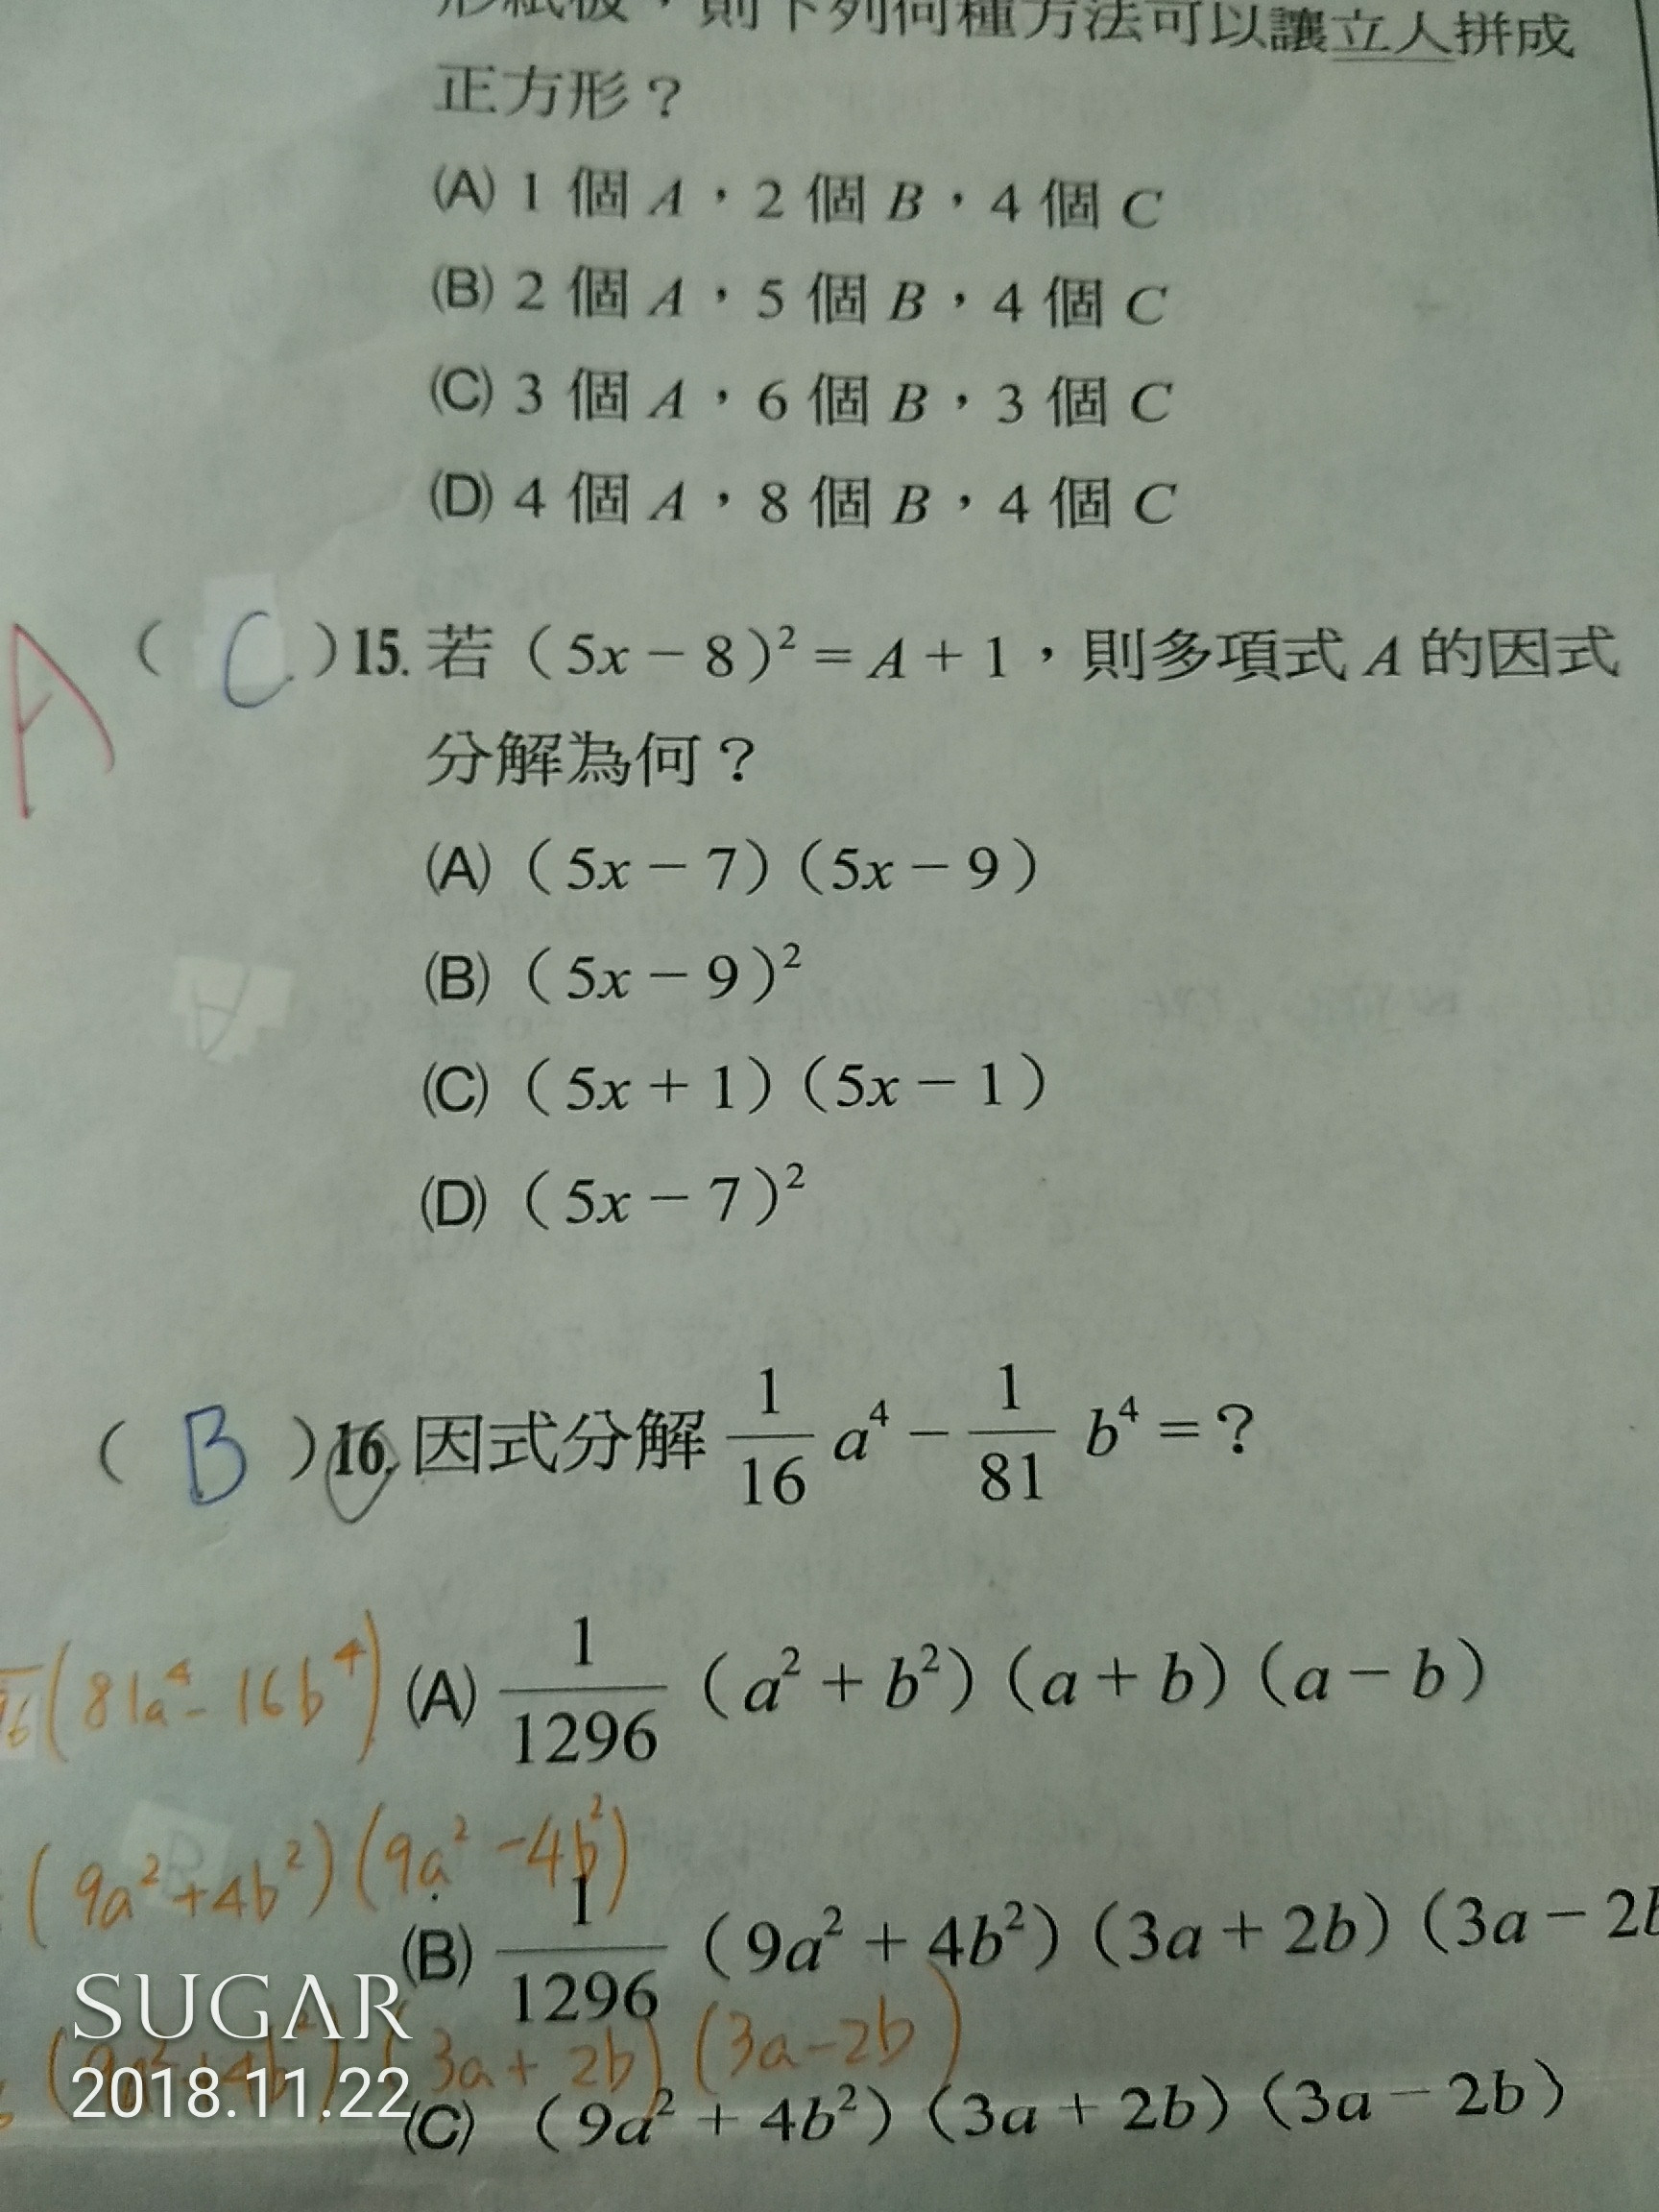 形紙板，則下列何種方法可以讓立人拼成
正方形？
(A) 1 個 A，2 個 B，4 個 C
(B) 2 個 A，5 個 B，4 個 C
(C) 3 個 A，6 個 B，3 個 C
(D) 4 個 A，8 個 B，4 個 C
A ( C ) 15. 若（5x－8）²＝A＋1，則多項式 A 的因式
分解為何？
(A)（5x－7）（5x－9）
(B)（5x－9）²
(C)（5x＋1）（5x－1）
(D)（5x－7）²
A
( B ) 16. 因式分解 1/16 a⁴－1/81 b⁴＝？
(81a⁴-16b⁴) (A) 1/1296（a²＋b²）（a＋b）（a－b）
(9a²+4b²)(9a²-4b²)
(B) 1/1296（9a²＋4b²）（3a＋2b）（3a－2b
(9a²+4b²)(3a+2b)(3a-2b)
(C)（9a²＋4b²）（3a＋2b）（3a－2b）
SUGAR
2018.11.22